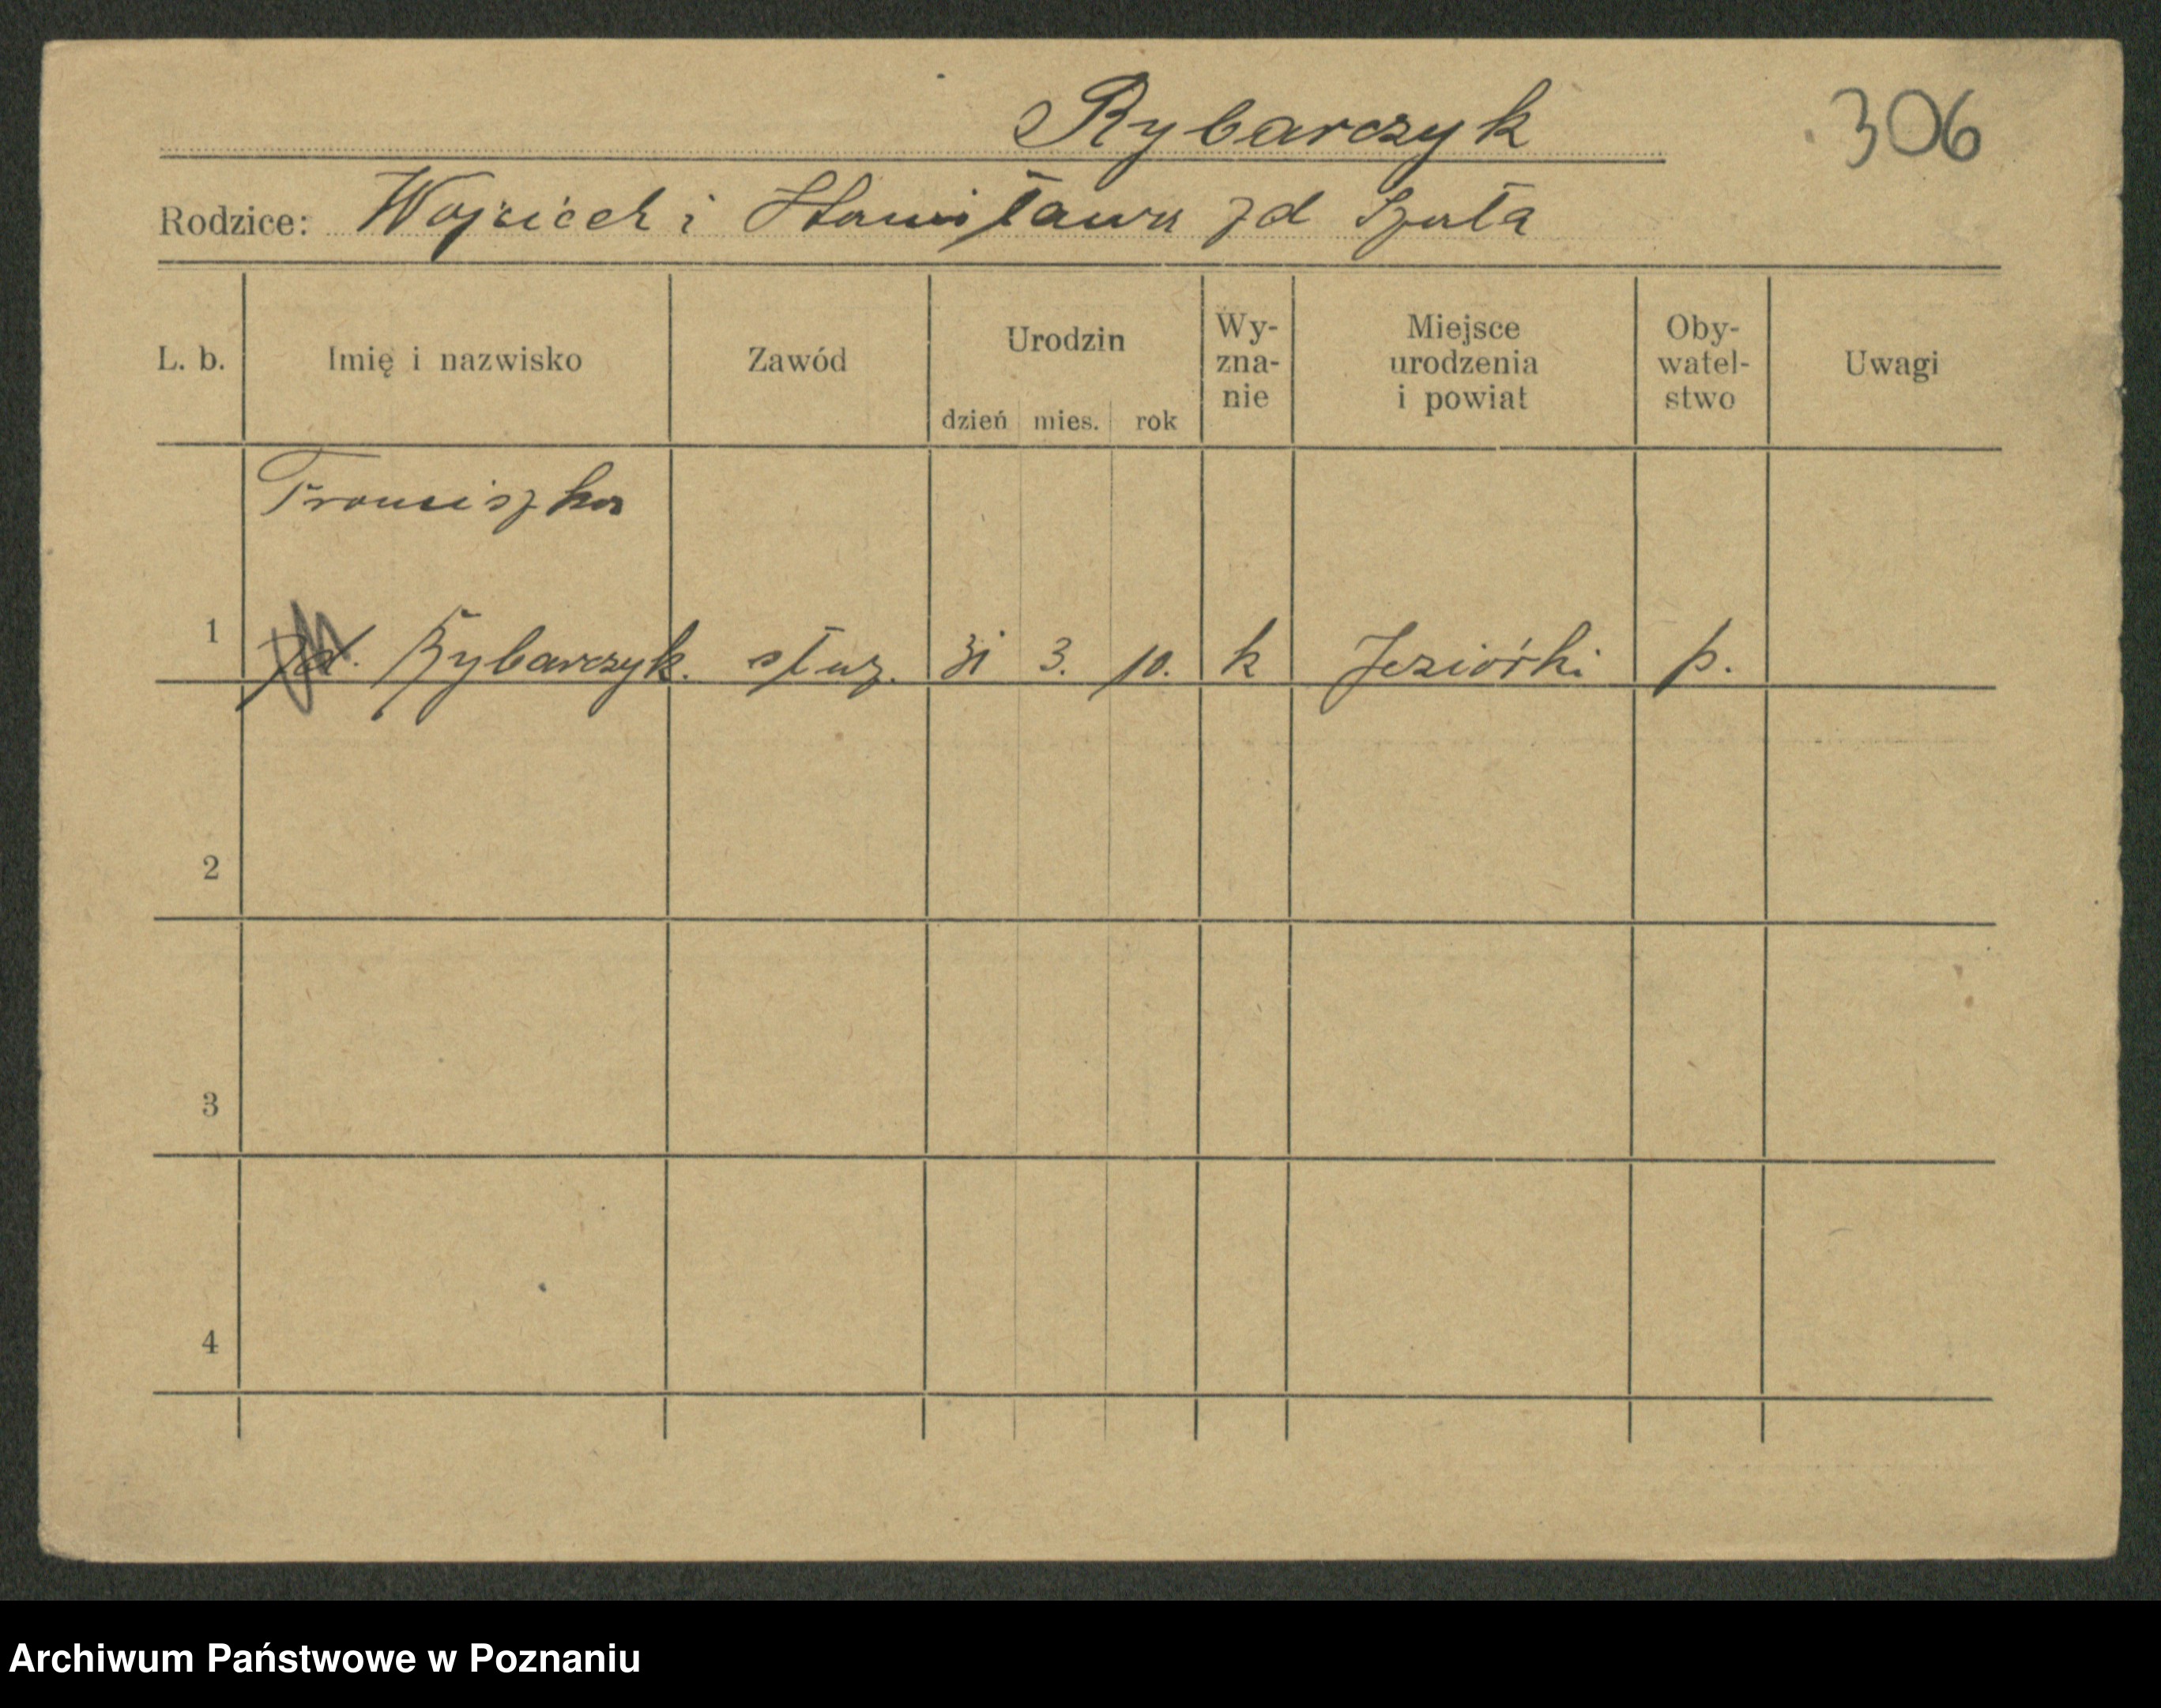 Rybarczyk
306
Rodzice: Wojciech i Stanisława zd Szała
L. b.
Imię i nazwisko
Zawód
Urodzin
dzień mies. rok
Wy-
zna-
nie
Miejsce
urodzenia
i powiat
Oby-
watel-
stwo
Uwagi
Franciszka
1 Rybarczyk. służ. 31 3. 10. k Jeziórki p.
2
3
4
Archiwum Państwowe w Poznaniu